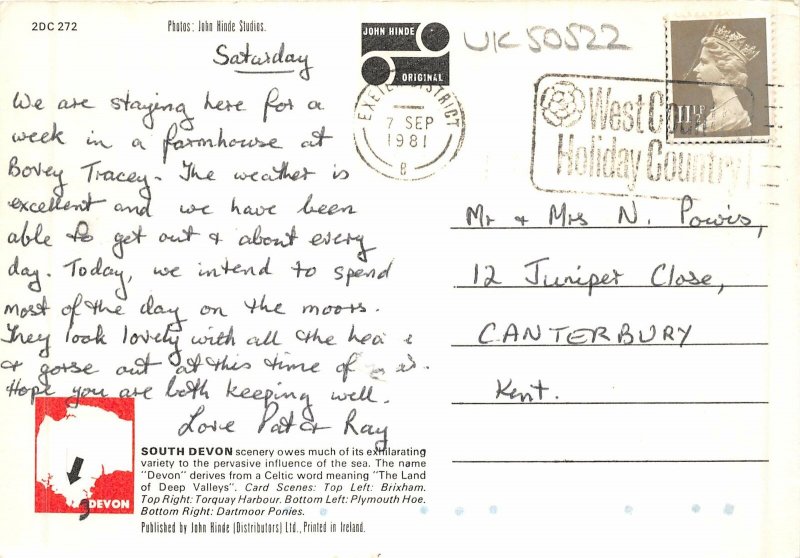 2DC 272
Photos: John Hinde Studios.
JOHN HINDE
ORIGINAL
UK50522
Saturday
We are staying here for a
week in a farmhouse at
Bovey Tracey. The weather is
excellent and we have been
able to get out & about every
day. Today, we intend to spend
most of the day on the moors.
They look lovely with all the
& gorse out at this time of
Hope you are both keeping well.
Love Pat & Ray
EXETER DISTRICT
7 SEP
1981
B
West
Holiday Country
11½P
Mr & Mrs N. Powis,
12 Juniper Close,
CANTERBURY
Kent.
DEVON
SOUTH DEVON scenery owes much of its exhilarating
variety to the pervasive influence of the sea. The name
"Devon" derives from a Celtic word meaning "The Land
of Deep Valleys". Card Scenes: Top Left: Brixham.
Top Right: Torquay Harbour. Bottom Left: Plymouth Hoe.
Bottom Right: Dartmoor Ponies.
Published by John Hinde (Distributors) Ltd., Printed in Ireland.